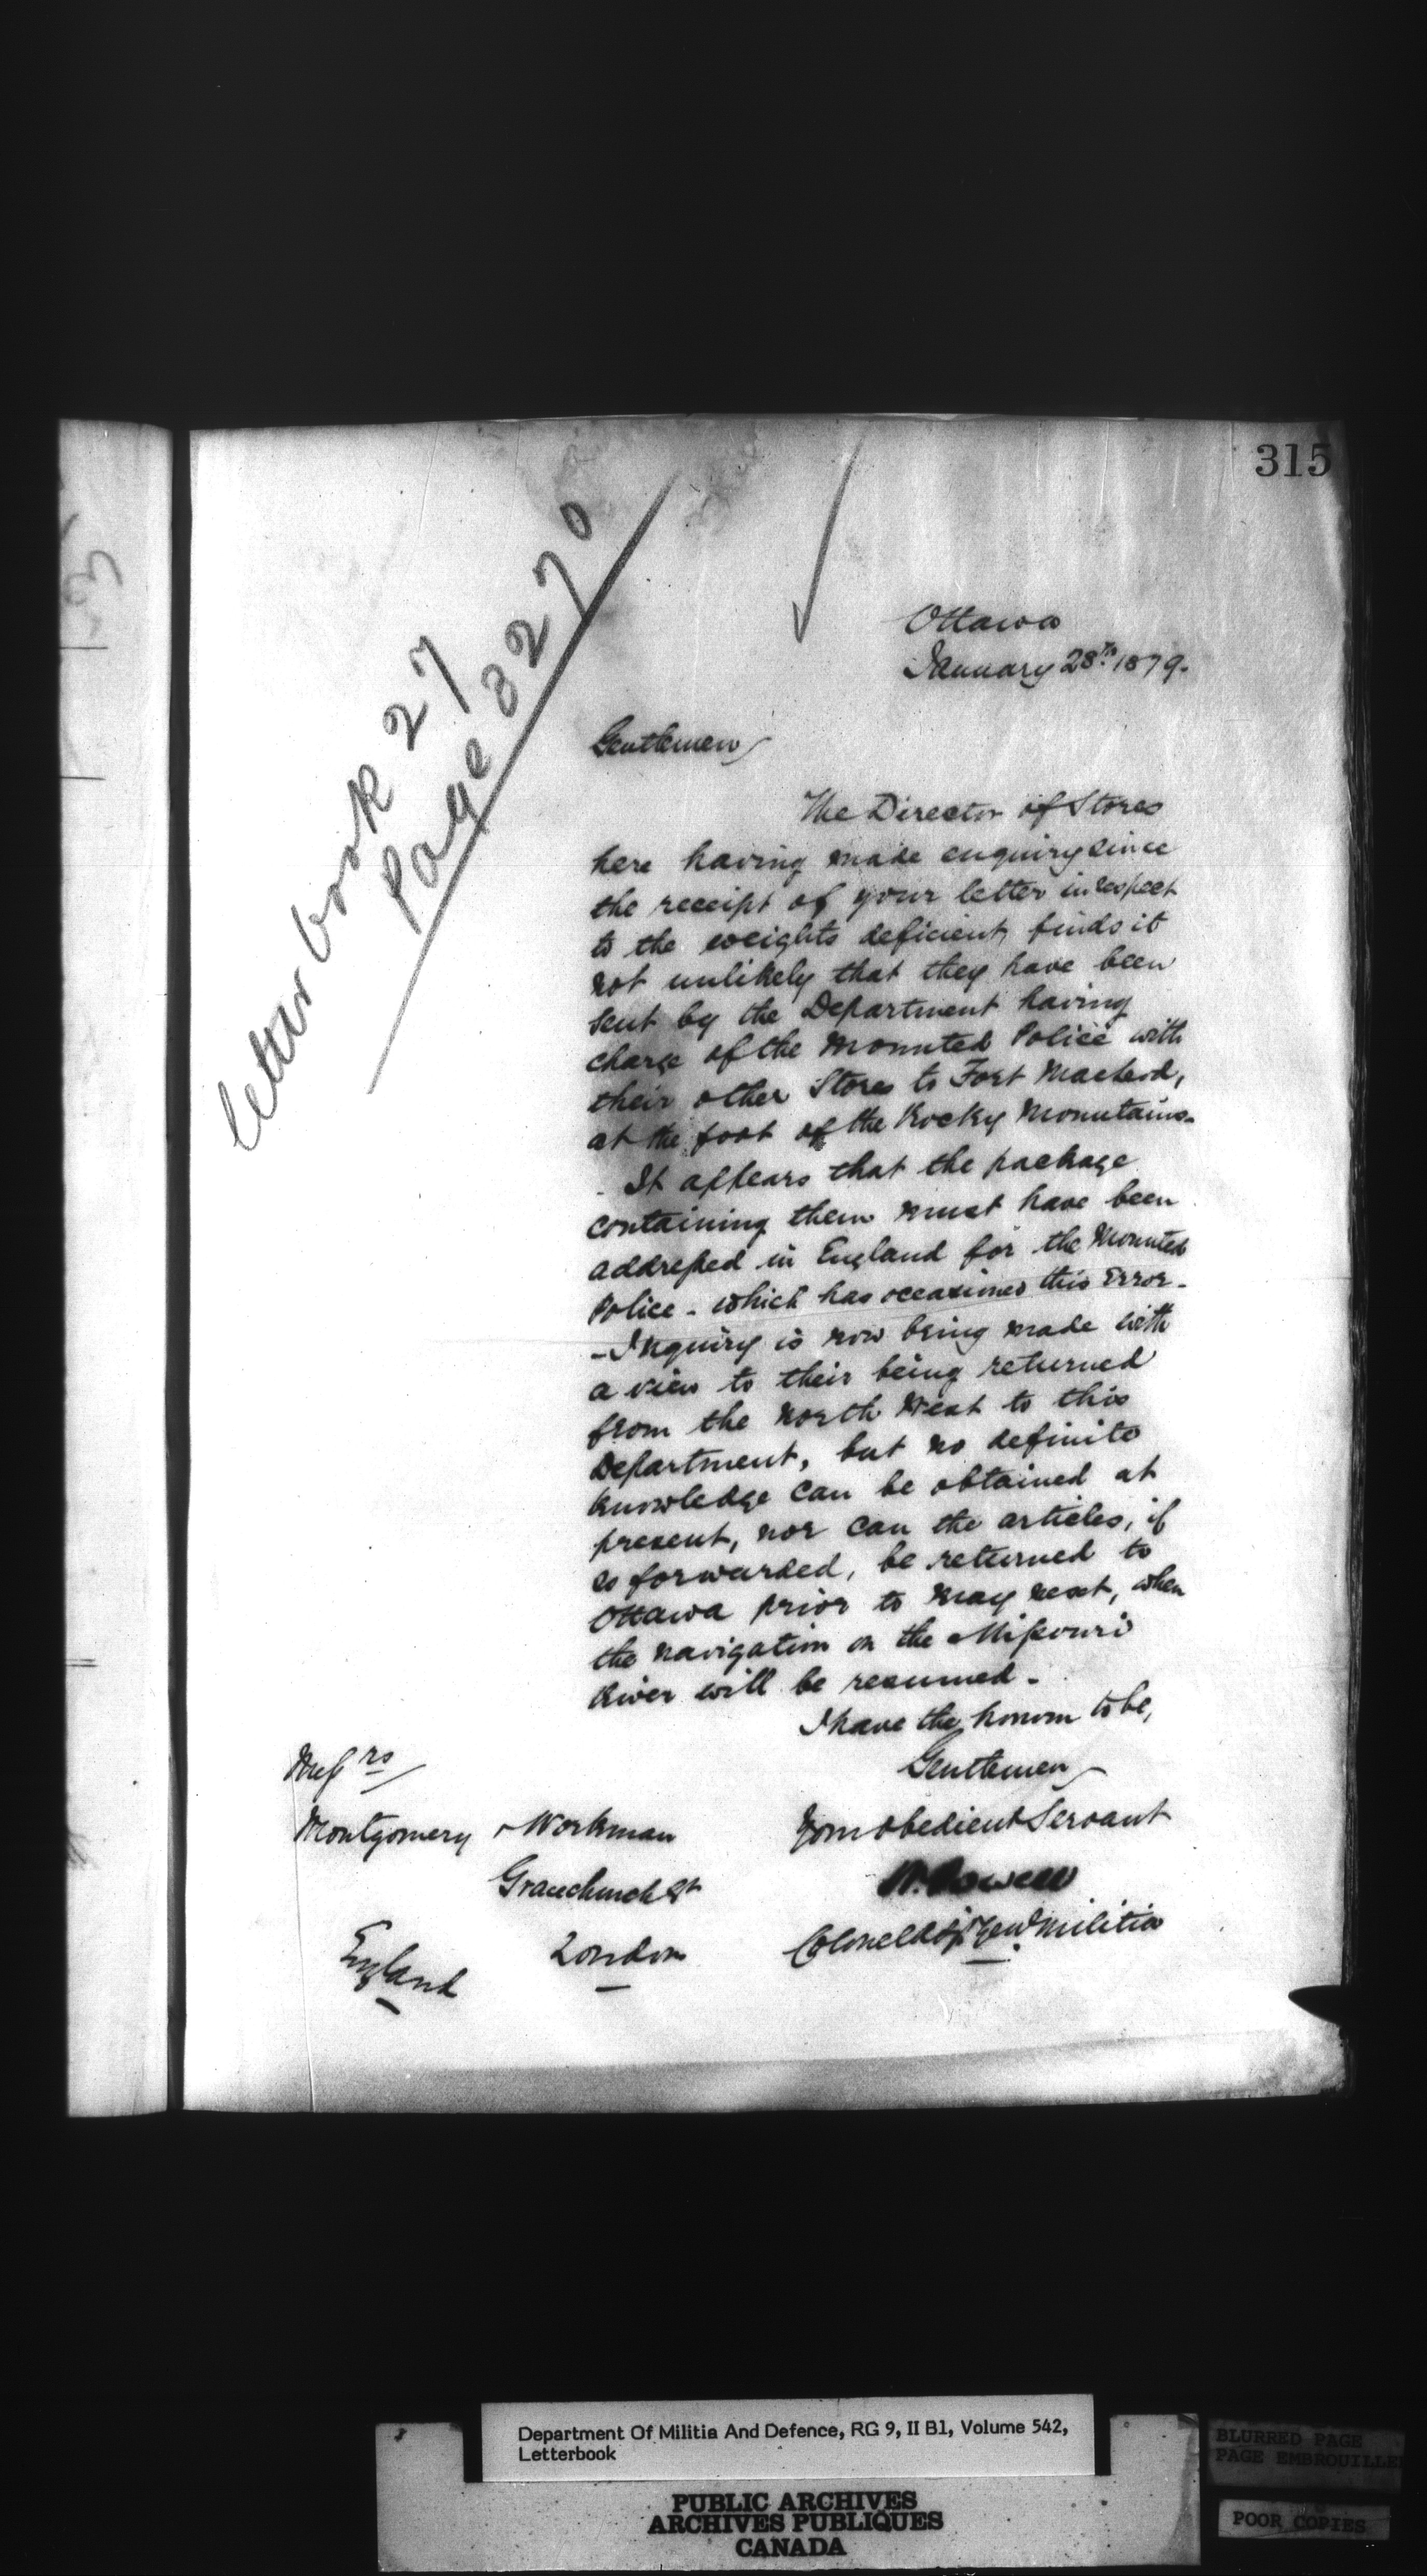 315
Letter book 27
Page 8270
Ottawa
January 28th 1879.
Gentlemen
The Director of Stores
here having made enquiry since
the receipt of your letter in respect
to the weights deficient, finds it
not unlikely that they have been
sent by the Department having
charge of the Mounted Police with
their other Stores to Fort Macleod,
at the foot of the Rocky Mountains.
- It appears that the package
containing them must have been
addressed in England for the Mounted
Police - which has occasioned this Error -
- Inquiry is now being made with
a view to their being returned
from the North West to this
Department, but no definite
knowledge can be obtained at
present, nor can the articles, if
so forwarded, be returned to
Ottawa prior to May next, when
the navigation on the Missouri
River will be resumed -
I have the honor to be,
Gentlemen
Your obedient Servant
W. Powell
Colonel Adjt Genl Militia
Messrs
Montgomery & Workman
Gracechurch St
London
England
Department Of Militia And Defence, RG 9, II B1, Volume 542,
Letterbook
PUBLIC ARCHIVES
ARCHIVES PUBLIQUES
CANADA
BLURRED PAGE
PAGE EMBROUILLE
POOR COPIES